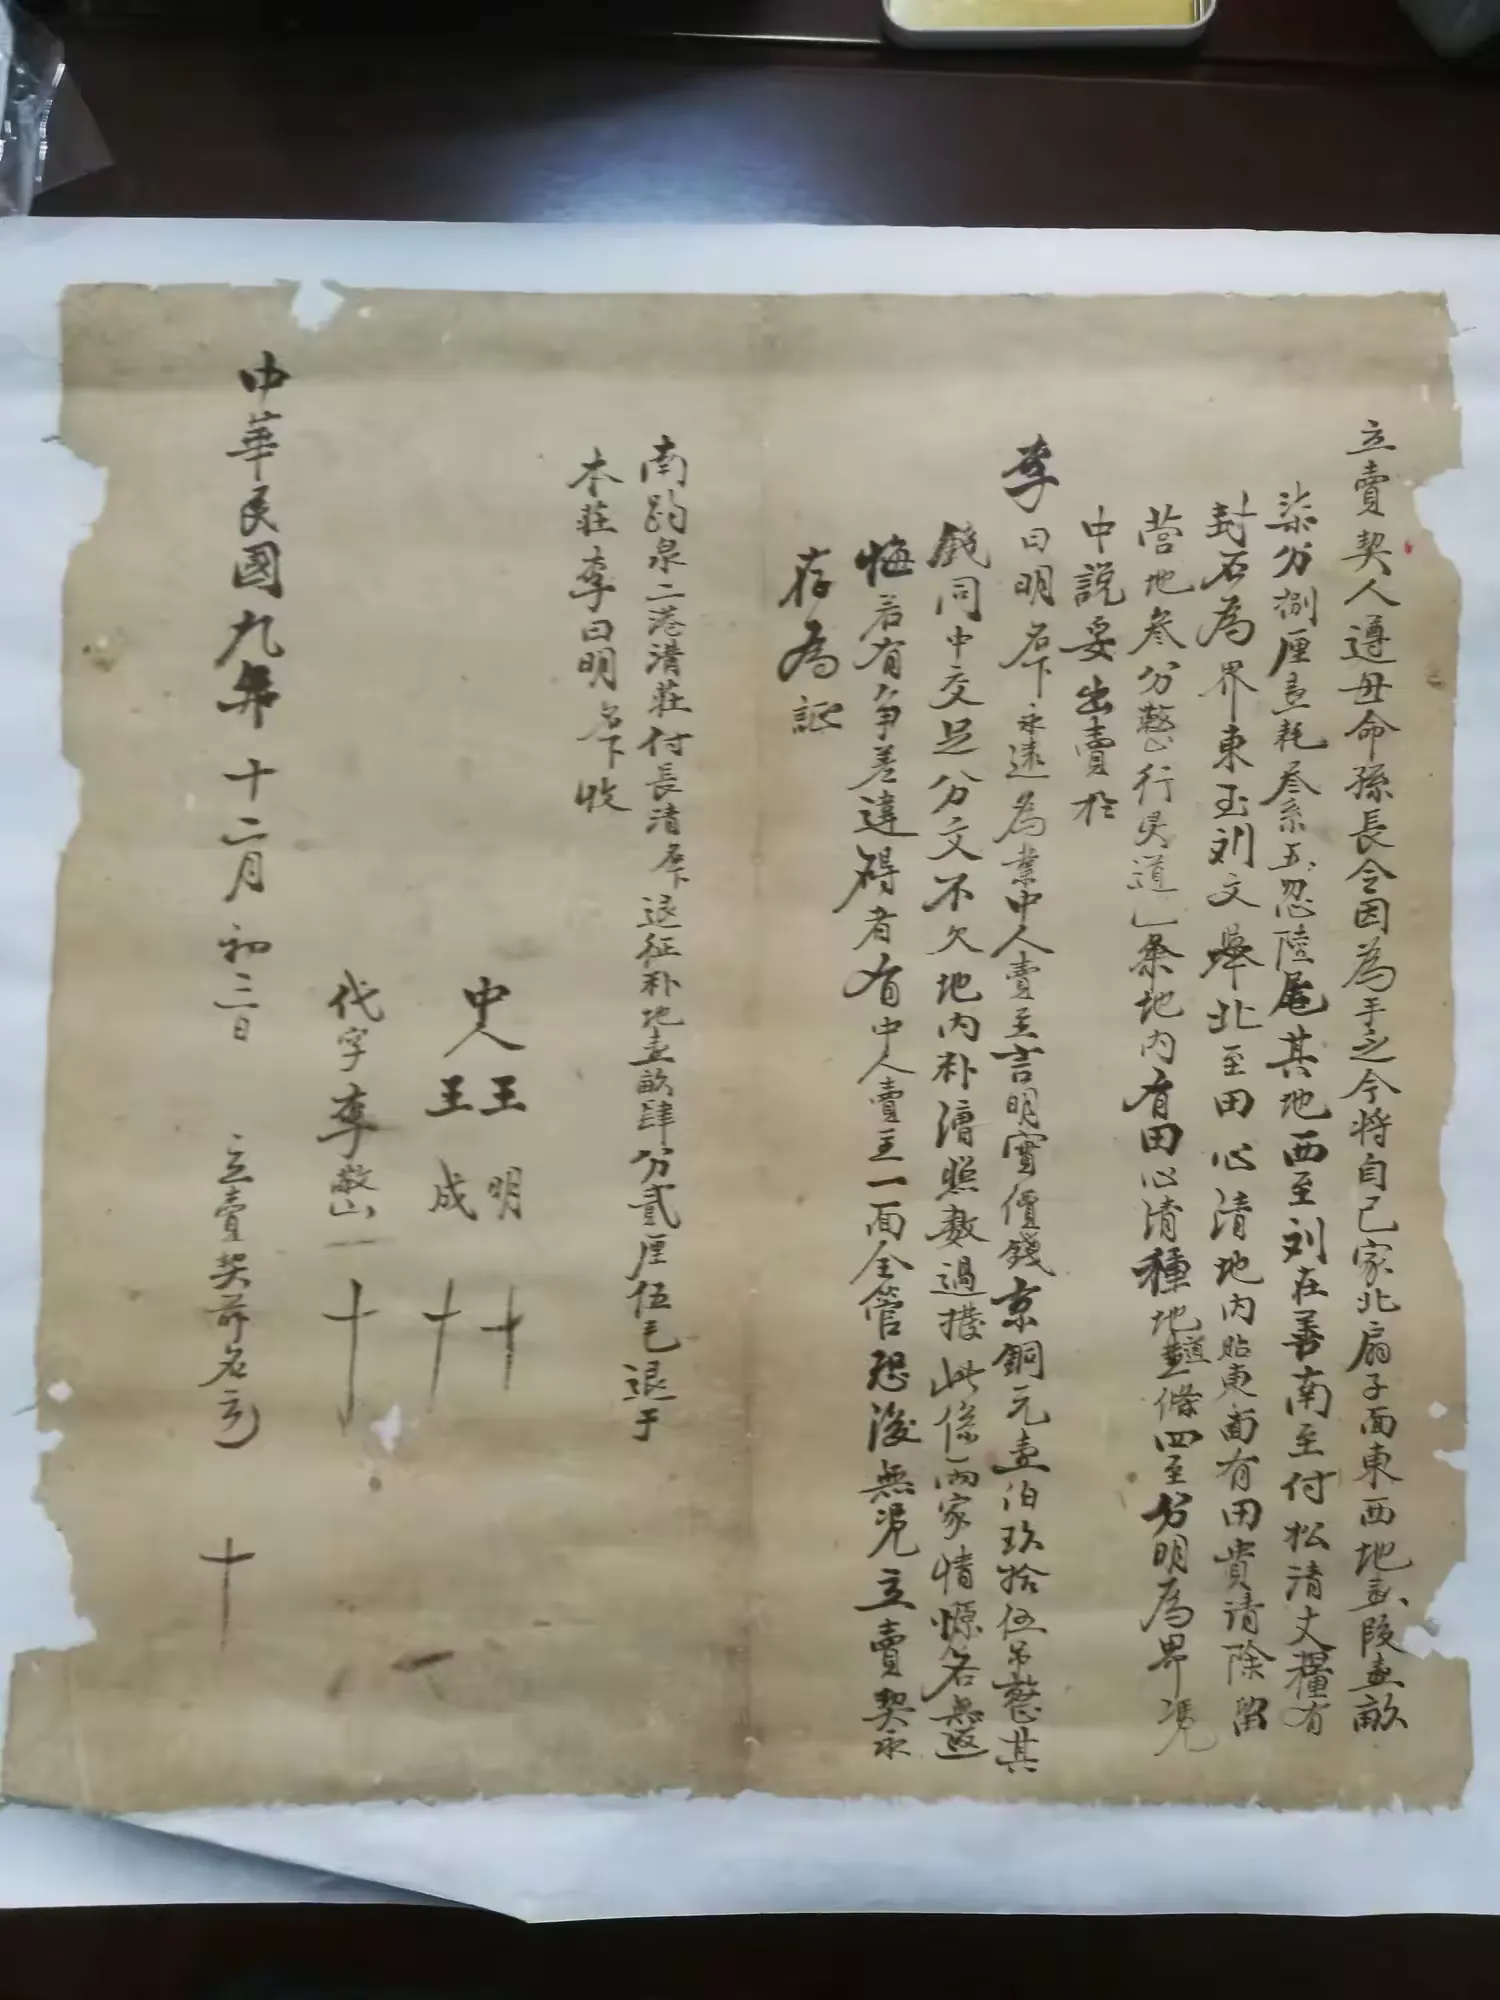 立賣契人遵母命孫長令因為手乏今將自己家北扇子面東西地壹段壹畝
柒分捌厘壹耗叄系五忽陸尾其地西至刘在善南至付松清丈糧有
封石為界東至刘文舉北至田心清地内貼東面有田貴請除留
营地叄分整行灵道一条地内有田心清種地道壹條四至分明為界憑
中説妥出賣於
李曰明名下永遠為業中人賣主言明實價錢京銅元壹伯玖拾伍吊整其
錢同中交足分文不欠地内朴漕照數過撥此係两家情愿各無返
悔若有争差違碍者有中人賣主一面全管恐後無憑立賣契永
存為証
南趵泉二港溝莊付長清名下退征朴地壹畝肆分貳厘伍毛退于
本莊李曰明名下收
中人 王明 十
王成 十
代字 李敬山 十
中華民國九年十二月初三日 立賣契前名立 十